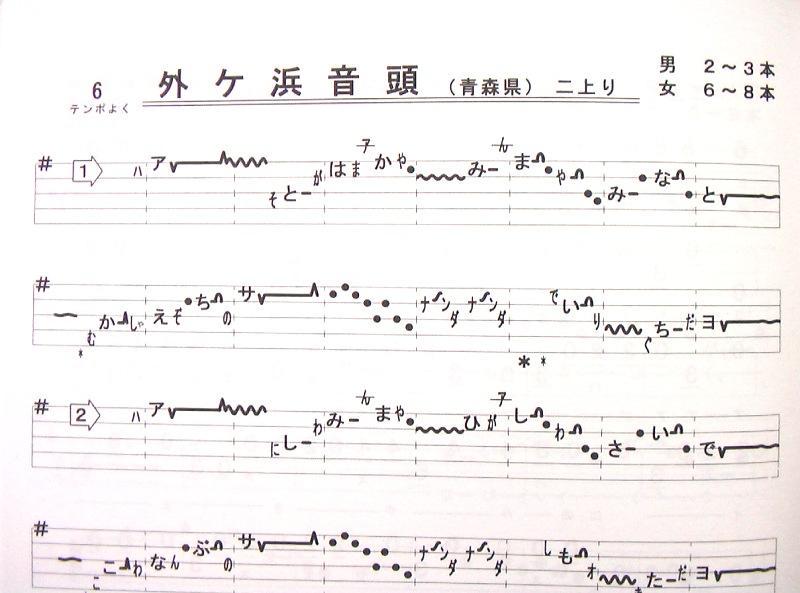 外ケ浜音頭（青森県）二上り
6
テンポよく
男 2～3本
女 6～8本
# 1 ハ ア そ とー が はま かや みー ん ま や みー な と
# む かし ゃ えぞ ち の サ ナンダ ナンダ で い り ぐ ちーだ ヨ
# 2 ハ ア に しー わ みー ん まや ひが し わ さー い で
# こ こ わ なん ぶ の サ ナンダ ナンダ し も オ たーだ ヨ